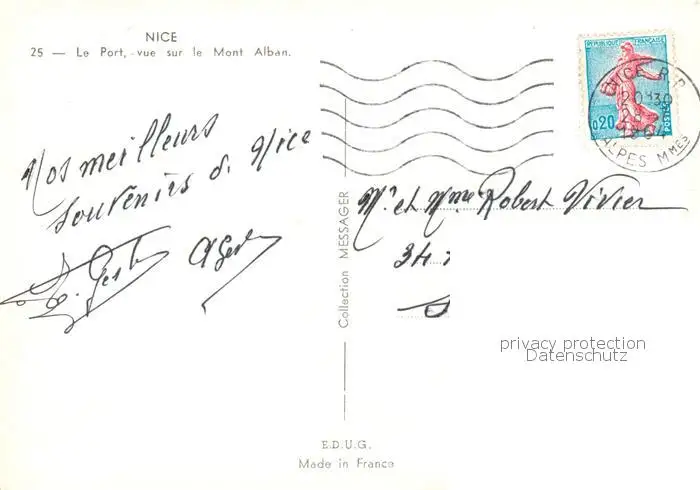 NICE
25 — Le Port, vue sur le Mont Alban.
Nos meilleurs
souvenirs de Nice
Collection MESSAGER
REPUBLIQUE FRANÇAISE
0,20
POSTES
NICE R.P.
20H30
28
1964
ALPES MMES
Mr et Mme Robert Vivier
34
privacy protection
Datenschutz
E.D.U.G.
Made in France